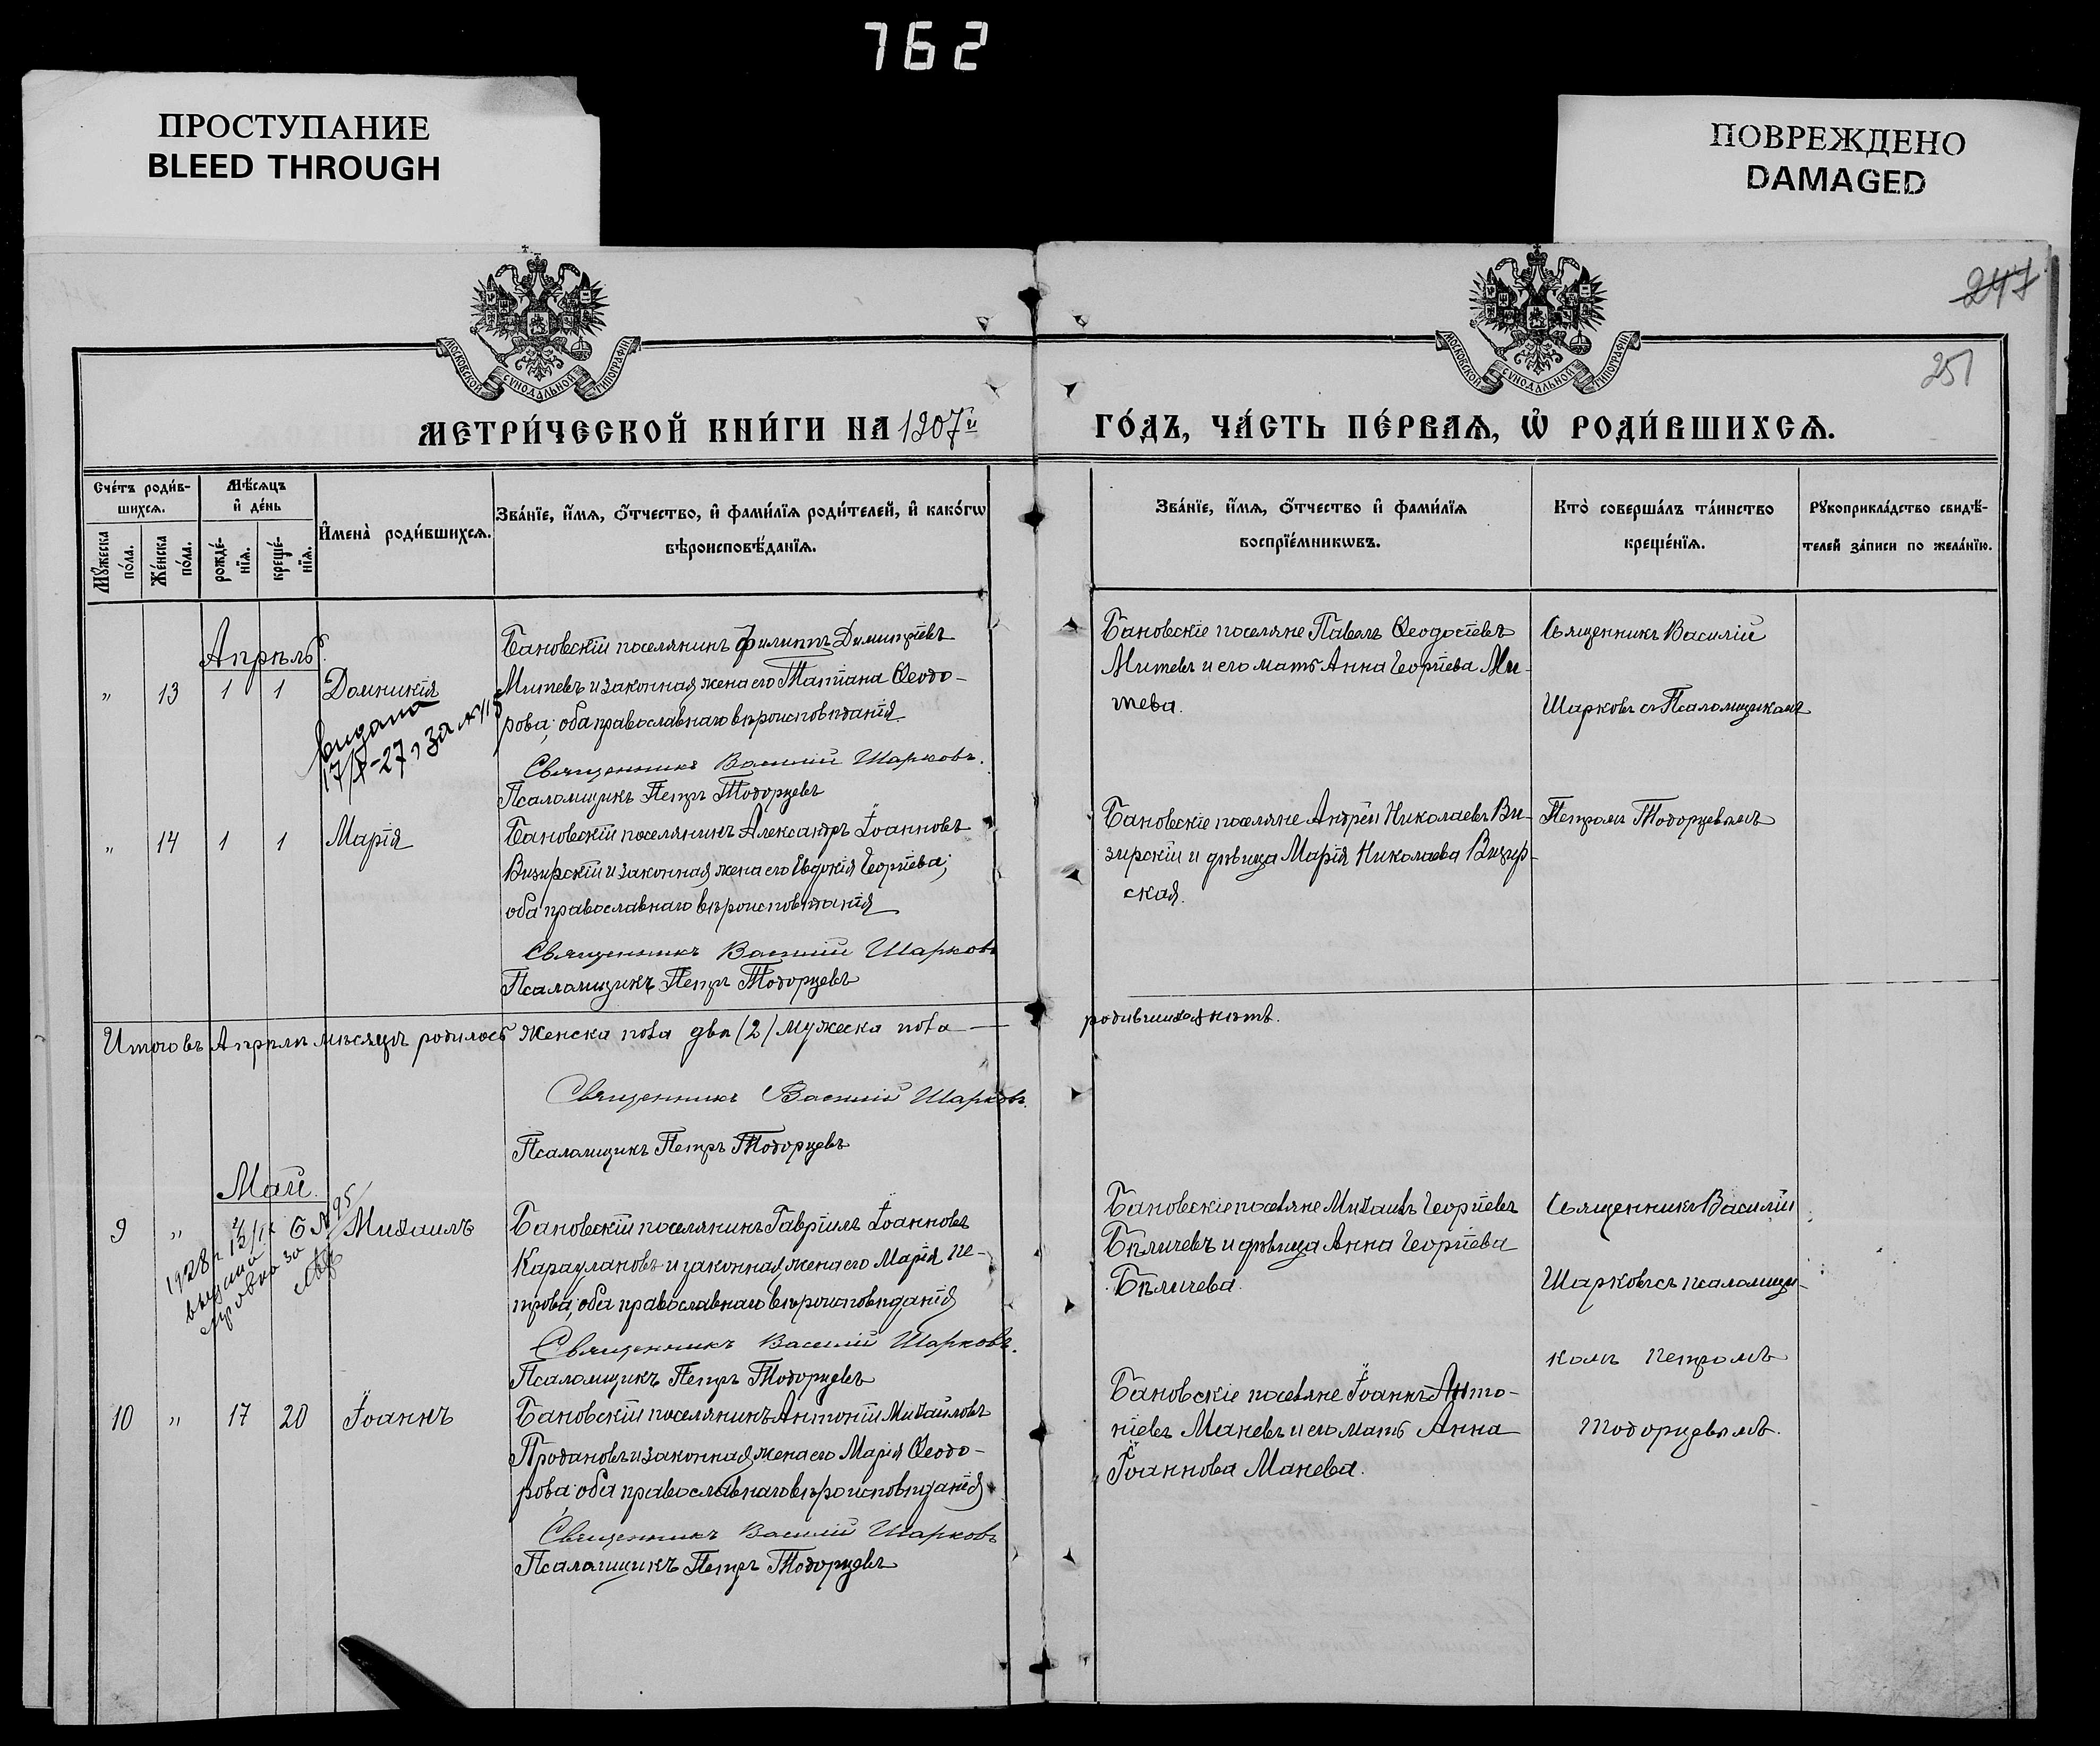 762
ПРОСТУПАНИЕ
BLEED THROUGH
ПОВРЕЖДЕНО
DAMAGED
247
251
МОСКОВСКОЙ СѴНОДАЛЬНОЙ ТИПОГРАФІИ
МОСКОВСКОЙ СѴНОДАЛЬНОЙ ТИПОГРАФІИ
МЕТРИ́ЧЕСКОЙ КНИ́ГИ НА 1907й
ГО́ДЪ, ЧА́СТЬ ПЕ́РВАѦ, Ѡ҆ РОДИ́ВШИХСѦ.
Сче́тъ роди́в-
шихсѧ.
Мѣ́сѧцъ
и҆ де́нь
И҆мена̀ роди́вшихсѧ.
Зва́нїе, и҆́мѧ, ѻ҆́тчество, и҆ фами́лїѧ роди́телей, и҆ како́гѡ
вѣроисповѣ́данїѧ.
Мꙋ́жеска
по́ла.
Же́нска
по́ла.
рожде́-
нїѧ.
креще́-
нїѧ.
Зва́нїе, и҆́мѧ, ѻ҆́тчество и҆ фами́лїѧ
воспрїе́мникѡвъ.
Кто̀ соверша́лъ та́инство
креще́нїѧ.
Рꙋкоприкла́дство свидѣ́-
телей за́писи по жела́нїю.
Апрѣль.
„ 13 1 1 Домникія
выдана
17/X-27, за №115
Бановскій поселянинъ Филиппъ Димитріевъ
Митевъ и законная жена его Татіана Ѳеодо-
рова; оба православнаго вѣроисповѣданія
Священникъ Василій Шарковъ.
Псаломщикъ Петръ Тодорцевъ
Бановскіе поселяне Павелъ Ѳеодосіевъ
Митевъ и его мать Анна Георгіева Ми-
тева.
Священникъ Василій
Шарковъ съ Псаломщикомъ
„ 14 1 1 Марія
Бановскій поселянинъ Александръ Іоанновъ
Визирскій и законная жена его Евдокія Георгіева;
оба православнаго вѣроисповѣданія
Священникъ Василій Шарковъ
Псаломщикъ Петръ Тодорцевъ
Бановскіе поселяне Андрей Николаевъ Ви-
зирскій и дѣвица Марія Николаева Визир-
ская.
Петромъ Тодорцевымъ
Итого въ Апрѣлѣ мѣсяцѣ родилось женска пола двѣ (2) мужеска пола —
родившихся нѣтъ.
Священникъ Василій Шарковъ.
Псаломщикъ Петръ Тодорцевъ
Май.
9 „ 6 Михаилъ
1928 г.
выдана
за
№ 95
Бановскій поселянинъ Гавріилъ Іоанновъ
Караулановъ и законная жена его Марія Пе-
трова; оба православнаго вѣроисповѣданія
Священникъ Василій Шарковъ.
Псаломщикъ Петръ Тодорцевъ
Бановскіе поселяне Михаилъ Георгіевъ
Бѣличевъ и дѣвица Анна Георгіева
Бѣличева.
Священникъ Василій
Шарковъ съ псаломщи-
комъ Петромъ
Тодорцевымъ.
10 „ 17 20 Іоаннъ
Бановскій поселянинъ Антоній Михайловъ
Продановъ и законная жена его Марія Ѳеодо-
рова; оба православнаго вѣроисповѣданія
Священникъ Василій Шарковъ
Псаломщикъ Петръ Тодорцевъ
Бановскіе поселяне Іоаннъ Анто-
ніевъ Маневъ и его мать Анна
Іоаннова Манева.